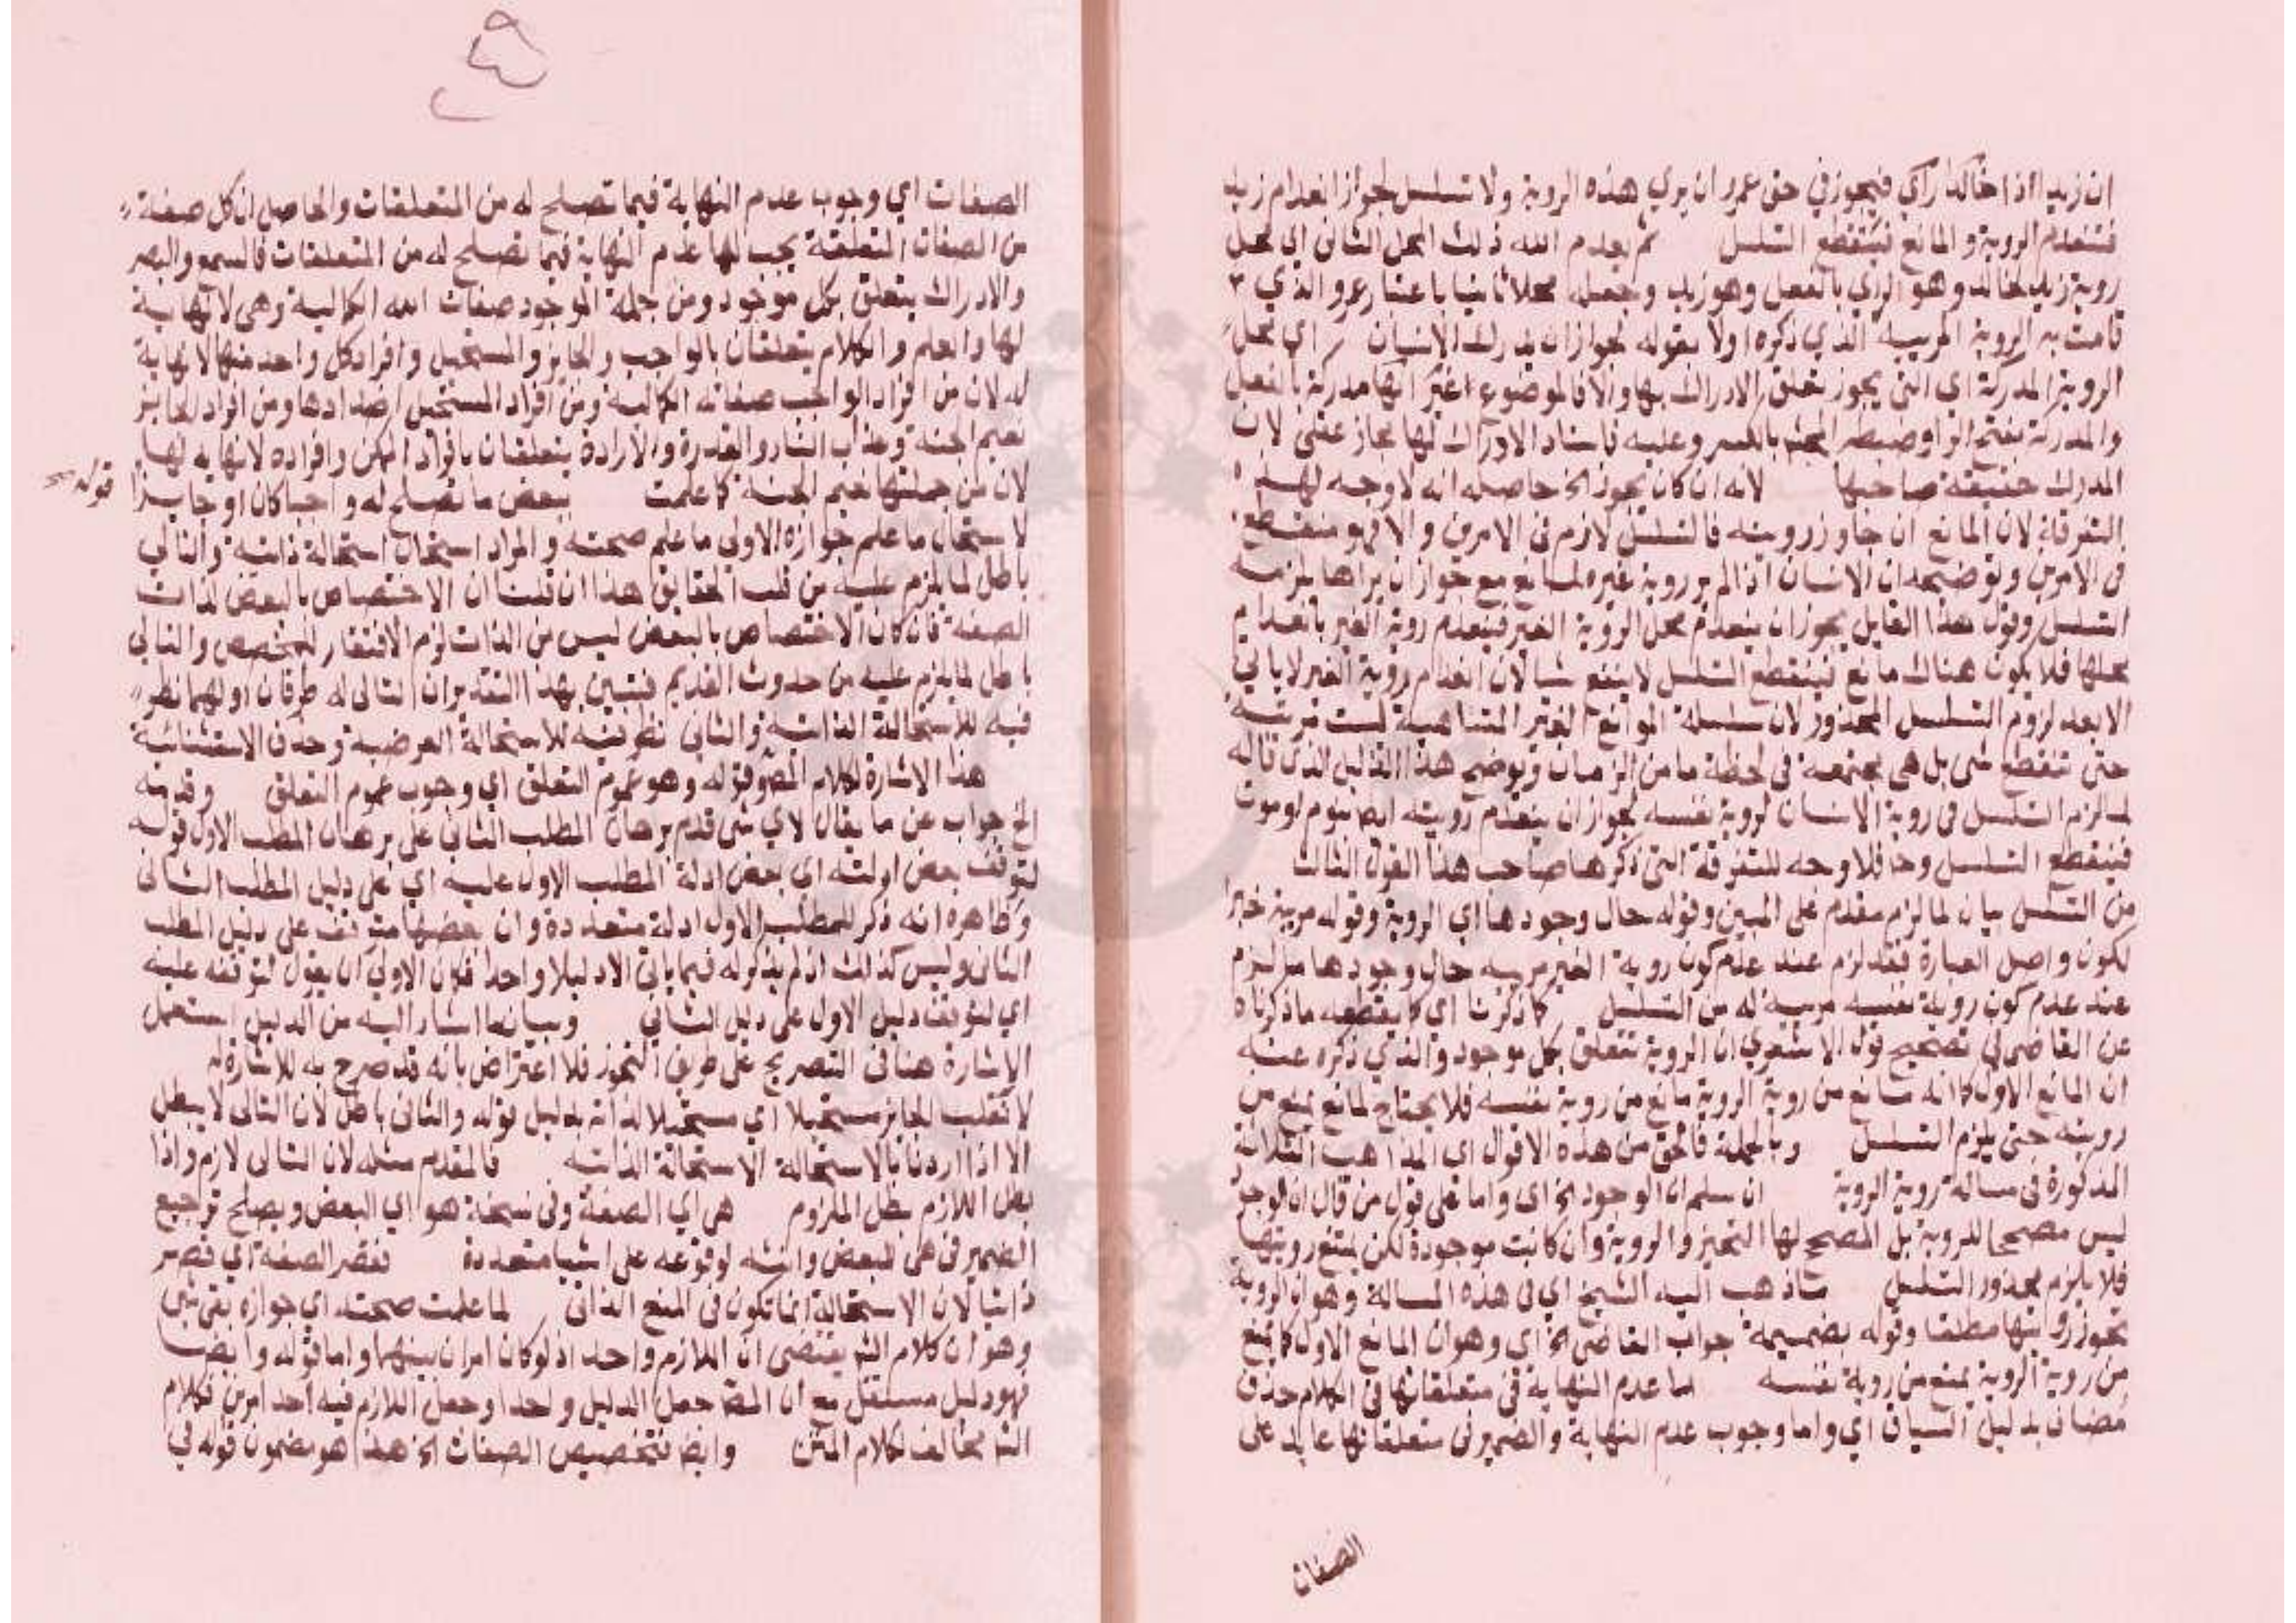 ان زيدا اذا خالدا رأي فيجوز في حق عمرو ان يري هذه الروية ولا تسلسل لجواز انعدام زيد
فتنعدم الروية و المانع فينقطع التسلسل ثم يعدم الله ذلك المحل الثاني اي محل
روية زيد لخالد وهو الرأي بالفعل وهو زيد وجعله محلا ثانيا باعتبار عمرو والذي
قامت به الروية المرييه الذي ذكره اولا بقوله لجواز ان يدرك الانسان اي محل
الروية المدركة اي التي يجوز تعلق الادراك بها والا فالموضوع انها مدركة بالفعل
والمدركة بفتح الرا وضبطه بالكسر وعليه فاسناد الادراك لها مجاز عقلي لان
المدرك حقيقة صاحبها لانه ان كان يجوز الخ حاصله انه لا وجه لهذه
التفرقة لان المانع ان جاوز رويته فالتسلسل لازم في الامرين والا فهو منقطع
في الامرين وتوضيحه ان الانسان اذا لم ير روية غيره لمانع مع جواز ان يراها يلزمه
التسلسل وقول هذا القايل يجوز ان ينعدم محل الروية الغير فينعدم روية الغير بانعدام
محلها فلا يكون هناك مانع فينقطع التسلسل لا ينفع شيا لان انعدام روية الغير لا ياتي
الا بعد لزوم التسلسل المحذور لان سلسلة الموانع الغير المتناهية ليست مرتبة
حتى تنقطع شي بل هي مجتمعة في لحظة ما من الزمان وتوضيح هذا القايل الذي قاله
لما لزم التسلسل في روية الانسان لروية نفسه لجواز ان ينعدم رويته ايضا بنوم او موت
فينقطع التسلسل وحا فلا وجه للتفرقة التي ذكرها صاحب هذا القول الثالث
من التسلسل بيان لما لزم مقدم على المبين وقوله حال وجودها اي الروية وقوله مريية خبرا
لكون واصل العبارة فقد لزم عند عدم كون روية الغير مرييه حال وجودها ما لزم
عند عدم كون روية نفسه مريية له من التسلسل كما ذكرنا اي ما ذكرناه
عن القاضي في تصحيح قول الاشعري ان الروية تتعلق بكل موجود والذي ذكره عنه
ان المانع الاول كما انه مانع من روية الروية مانع من روية نفسه فلا يحتاج لمانع يمنع من
رويته حتى يلزم التسلسل وبالجملة فالحق من هذه الاقوال اي المذاهب الثلاثة
المذكورة في مسالة روية الروية ان سلم ان الوجود الخ اي واما على قول من قال ان الوجود
ليس مصححا للروية بل المصحح لها التحيز والروية وان كانت موجودة لكن يمتنع رويتها
فلا يلزم محذور التسلسل ماذهب اليه الشيخ اي في هذه المسالة وهو ان الروية
تجوز رويتها مطلقا وقوله بضميمة جواب القاضي الخ اي وهو ان المانع الاول كما يمنع
من روية الروية يمنع من روية نفسه اما عدم النهاية في متعلقاتها في الكلام حذف
مضاف بدليل السياق اي واما وجوب عدم النهاية والضمير في متعلقاتها عايد على
الصفات
الصفات اي وجوب عدم النهاية فيما تصلح له من المتعلقات والحاصل ان كل صفة
من الصفات المتعلقة يجب لها عدم النهاية فيما تصلح له من المتعلقات فالسمع والبصر
والادراك يتعلق بكل موجود ومن جملة الموجود صفات الله الكمالية وهي لا نهاية
لها والعلم والكلام يتعلقان بالواجب والجايز والمستحيل وافراد كل واحد منها لا نهاية
له لان من افراد الواجب صفاته الكمالية ومن افراد المستحيل اضدادها ومن افراد الجايز
نعيم الجنة وعذاب النار والقدرة والارادة يتعلقان بافراد الممكن وافراده لا نهاية لها
لان من جملتها نعيم الجنة كما علمت ببعض ما تصلح له واجبا كان او جايزا
قوله
لاستحال ما علم جوازه الاولي ما علم صحته والمراد استحال استحالة ذاتية والتالي
باطل لما يلزم عليه من قلب الحقايق هذا ان قلنا ان الاختصاص بالبعض لذات
الصفة فان كان الاختصاص بالبعض ليس من الذات لزم الافتقار لمخصص والتالي
باطل لما يلزم عليه من حدوث القديم فتبين بهذا التقدير ان التالي له طرفان اولهما نظر
فيه للاستحالة الذاتية والثاني نظر فيه للاستحالة العرضية وحذف الاستثنائية
هذا الاشارة لكلام المص وقوله وهو عموم التعلق اي وجوب عموم التعلق وقدمته
الخ جواب عن ما يقال لاي شي قدم برهان المطلب الثاني على برهان المطلب الاول قوله
لتوقف بعض ادلته اي بعض ادلة المطلب الاول عليه اي على دليل المطلب الثاني
وظاهره انه ذكر للمطلب الاول ادلة متعددة وان بعضها متوقف على دليل المطلب
الثاني وليس كذلك اذ لم يذكر له فيما ياتي الا دليلا واحدا فكان الاولي ان يقول لتوقفه عليه
اي لتوقف دليل الاول على دليل الثاني وبيان ما اشار اليه من الدليل استعمل
الاشارة هنا في التصريح على طريق التجوز فلا اعتراض بانه قد صرح به لا اشار له
لا نقلب الجايز مستحيلا اي مستحيلا لذاته بدليل قوله والثاني باطل لان التالي لا يبطل
الا اذا اردنا بالاستحالة الاستحالة الذاتية فالمقدم مثله لان التالي لازم واذا
بطل اللازم بطل الملزوم هي اي الصفة وفي نسخة هو اي البعض ويصلح ترجيع
الضمير في هي للبعض وانثه لوقوعه على اشيا متعددة نقصر الصفة اي قصر
ذاتيا لان الاستحالة انما تكون في المنع الذاتي لما علمت صحته اي جوازه بقي شي
وهو ان كلام الش يقتضي ان اللازم واحد اذ لو كان امران بينهما واما قوله وايضا
فهو دليل مستقل مع ان المص جعل الدليل واحدا وجعل اللازم فيه احد امرين فكلام
الش مخالف لكلام المتن وايضا فتخصيص الصفات الخ هذا هو مضمون قوله في